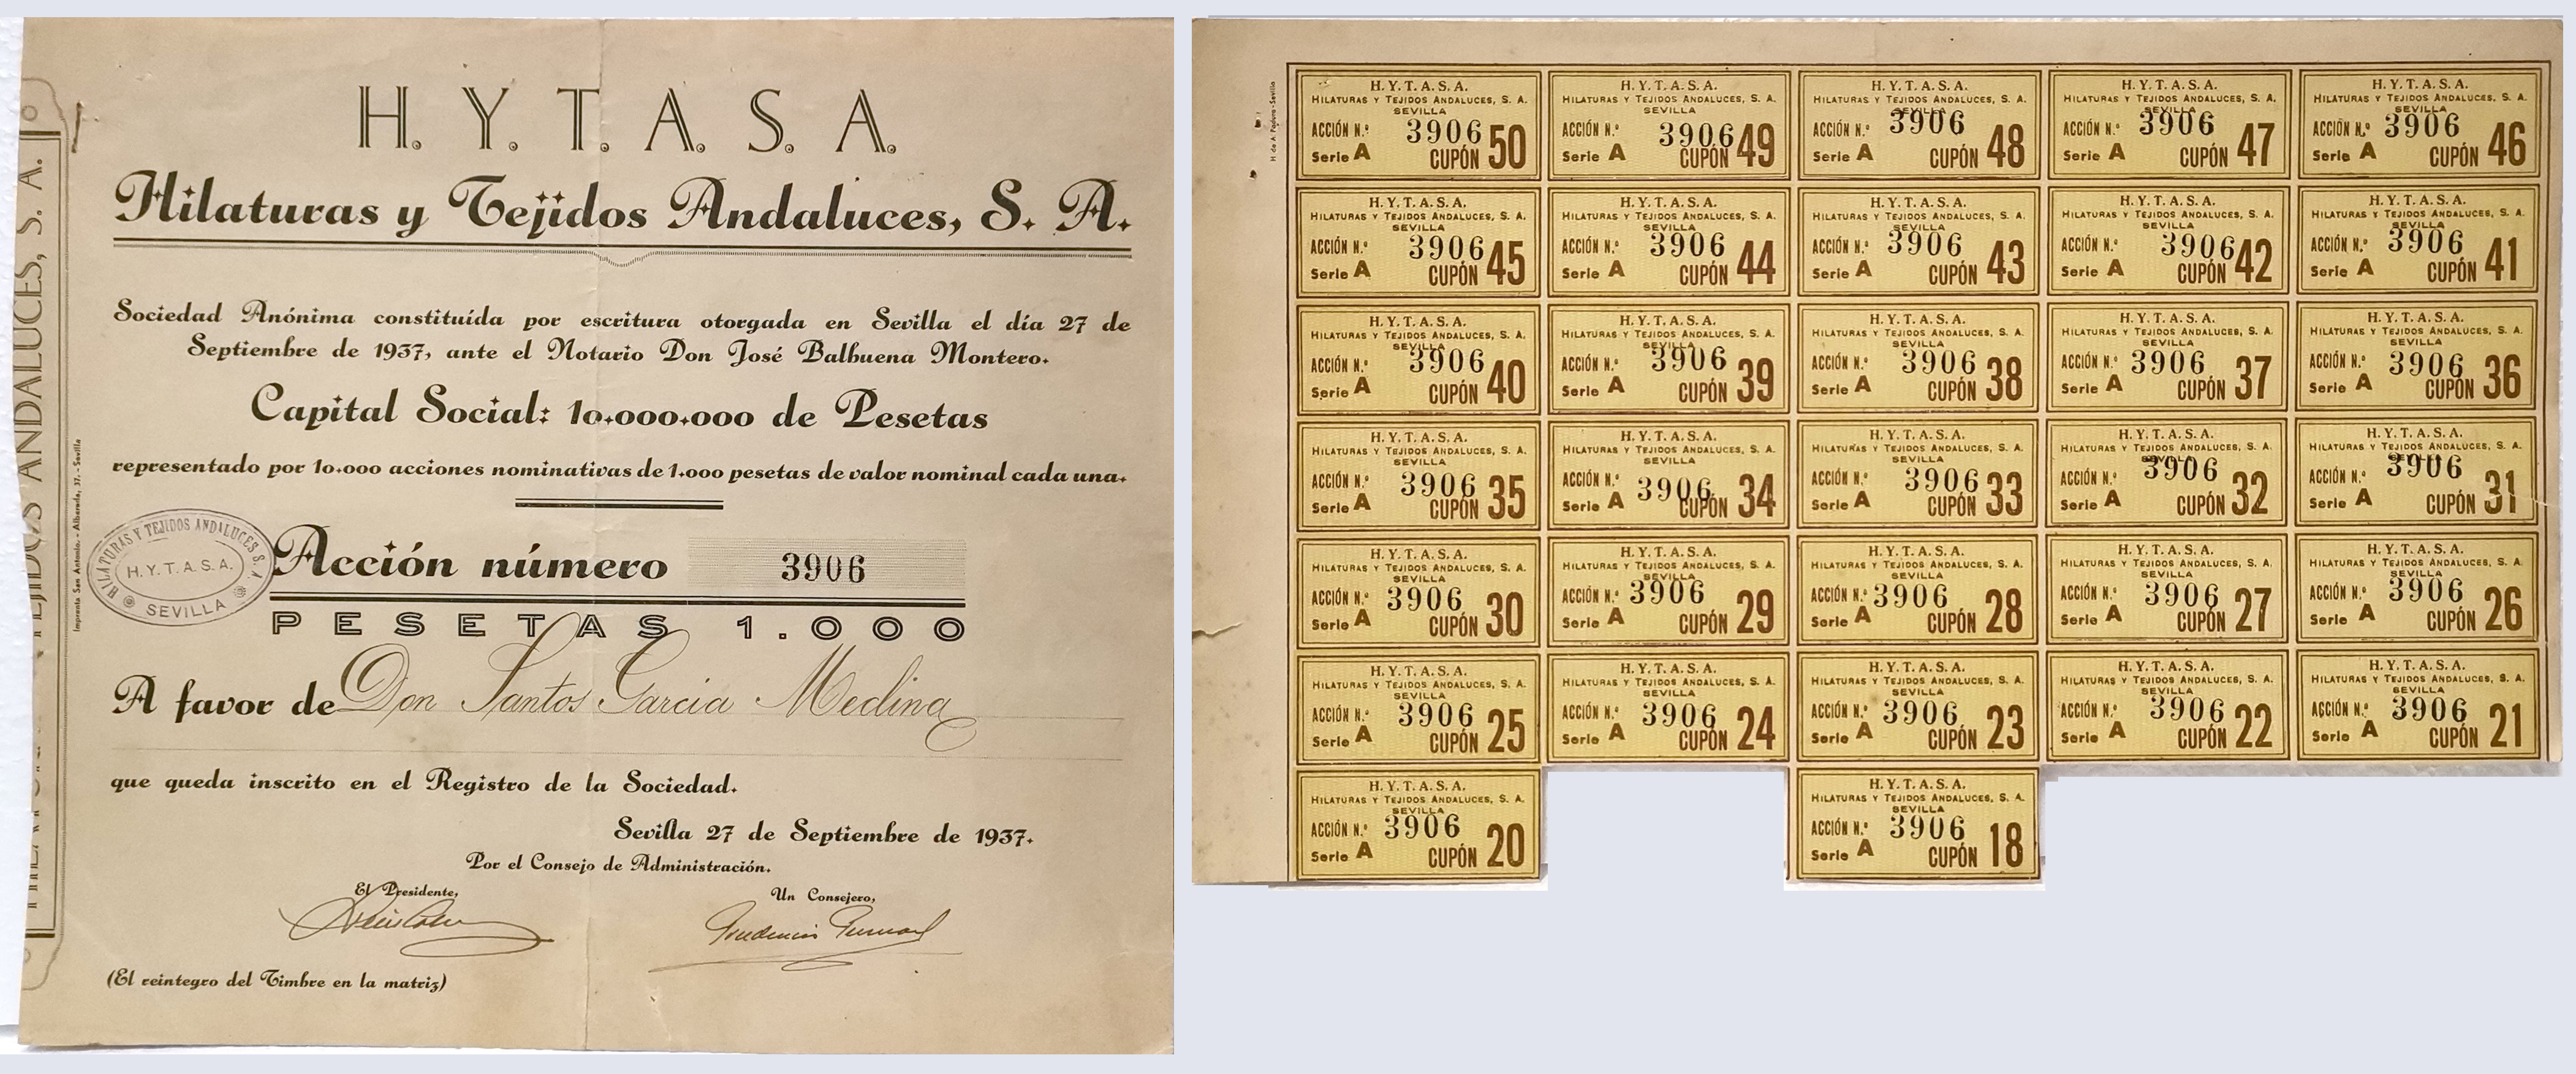 H. Y. T. A. S. A.
Hilaturas y Tejidos Andaluces, S. A.
Sociedad Anónima constituída por escritura otorgada en Sevilla el día 27 de
Septiembre de 1937, ante el Notario Don José Balbuena Montero.
Capital Social: 10.000.000 de Pesetas
representado por 10.000 acciones nominativas de 1.000 pesetas de valor nominal cada una.
HILATURAS Y TEJIDOS ANDALUCES S. A.
H. Y. T. A. S. A.
SEVILLA
Acción número 3906
PESETAS 1.000
A favor de Don Santos Garcia Medina
que queda inscrito en el Registro de la Sociedad.
Sevilla 27 de Septiembre de 1937.
Por el Consejo de Administración.
El Presidente,
Un Consejero,
(El reintegro del Timbre en la matriz)
TEJIDOS ANDALUCES, S. A.
Imprenta San Antonio. - Albareda, 37. - Sevilla
H. Y. T. A. S. A.
HILATURAS Y TEJIDOS ANDALUCES, S. A.
SEVILLA
ACCIÓN N.º 3906
Serie A CUPÓN 50
H. Y. T. A. S. A.
HILATURAS Y TEJIDOS ANDALUCES, S. A.
SEVILLA
ACCIÓN N.º 3906
Serie A CUPÓN 49
H. Y. T. A. S. A.
HILATURAS Y TEJIDOS ANDALUCES, S. A.
SEVILLA
ACCIÓN N.º 3906
Serie A CUPÓN 48
H. Y. T. A. S. A.
HILATURAS Y TEJIDOS ANDALUCES, S. A.
SEVILLA
ACCIÓN N.º 3906
Serie A CUPÓN 47
H. Y. T. A. S. A.
HILATURAS Y TEJIDOS ANDALUCES, S. A.
SEVILLA
ACCIÓN N.º 3906
Serie A CUPÓN 46
H. Y. T. A. S. A.
HILATURAS Y TEJIDOS ANDALUCES, S. A.
SEVILLA
ACCIÓN N.º 3906
Serie A CUPÓN 45
H. Y. T. A. S. A.
HILATURAS Y TEJIDOS ANDALUCES, S. A.
SEVILLA
ACCIÓN N.º 3906
Serie A CUPÓN 44
H. Y. T. A. S. A.
HILATURAS Y TEJIDOS ANDALUCES, S. A.
SEVILLA
ACCIÓN N.º 3906
Serie A CUPÓN 43
H. Y. T. A. S. A.
HILATURAS Y TEJIDOS ANDALUCES, S. A.
SEVILLA
ACCIÓN N.º 3906
Serie A CUPÓN 42
H. Y. T. A. S. A.
HILATURAS Y TEJIDOS ANDALUCES, S. A.
SEVILLA
ACCIÓN N.º 3906
Serie A CUPÓN 41
H. Y. T. A. S. A.
HILATURAS Y TEJIDOS ANDALUCES, S. A.
SEVILLA
ACCIÓN N.º 3906
Serie A CUPÓN 40
H. Y. T. A. S. A.
HILATURAS Y TEJIDOS ANDALUCES, S. A.
SEVILLA
ACCIÓN N.º 3906
Serie A CUPÓN 39
H. Y. T. A. S. A.
HILATURAS Y TEJIDOS ANDALUCES, S. A.
SEVILLA
ACCIÓN N.º 3906
Serie A CUPÓN 38
H. Y. T. A. S. A.
HILATURAS Y TEJIDOS ANDALUCES, S. A.
SEVILLA
ACCIÓN N.º 3906
Serie A CUPÓN 37
H. Y. T. A. S. A.
HILATURAS Y TEJIDOS ANDALUCES, S. A.
SEVILLA
ACCIÓN N.º 3906
Serie A CUPÓN 36
H. Y. T. A. S. A.
HILATURAS Y TEJIDOS ANDALUCES, S. A.
SEVILLA
ACCIÓN N.º 3906
Serie A CUPÓN 35
H. Y. T. A. S. A.
HILATURAS Y TEJIDOS ANDALUCES, S. A.
SEVILLA
ACCIÓN N.º 3906
Serie A CUPÓN 34
H. Y. T. A. S. A.
HILATURAS Y TEJIDOS ANDALUCES, S. A.
SEVILLA
ACCIÓN N.º 3906
Serie A CUPÓN 33
H. Y. T. A. S. A.
HILATURAS Y TEJIDOS ANDALUCES, S. A.
SEVILLA
ACCIÓN N.º 3906
Serie A CUPÓN 32
H. Y. T. A. S. A.
HILATURAS Y TEJIDOS ANDALUCES, S. A.
SEVILLA
ACCIÓN N.º 3906
Serie A CUPÓN 31
H. Y. T. A. S. A.
HILATURAS Y TEJIDOS ANDALUCES, S. A.
SEVILLA
ACCIÓN N.º 3906
Serie A CUPÓN 30
H. Y. T. A. S. A.
HILATURAS Y TEJIDOS ANDALUCES, S. A.
SEVILLA
ACCIÓN N.º 3906
Serie A CUPÓN 29
H. Y. T. A. S. A.
HILATURAS Y TEJIDOS ANDALUCES, S. A.
SEVILLA
ACCIÓN N.º 3906
Serie A CUPÓN 28
H. Y. T. A. S. A.
HILATURAS Y TEJIDOS ANDALUCES, S. A.
SEVILLA
ACCIÓN N.º 3906
Serie A CUPÓN 27
H. Y. T. A. S. A.
HILATURAS Y TEJIDOS ANDALUCES, S. A.
SEVILLA
ACCIÓN N.º 3906
Serie A CUPÓN 26
H. Y. T. A. S. A.
HILATURAS Y TEJIDOS ANDALUCES, S. A.
SEVILLA
ACCIÓN N.º 3906
Serie A CUPÓN 25
H. Y. T. A. S. A.
HILATURAS Y TEJIDOS ANDALUCES, S. A.
SEVILLA
ACCIÓN N.º 3906
Serie A CUPÓN 24
H. Y. T. A. S. A.
HILATURAS Y TEJIDOS ANDALUCES, S. A.
SEVILLA
ACCIÓN N.º 3906
Serie A CUPÓN 23
H. Y. T. A. S. A.
HILATURAS Y TEJIDOS ANDALUCES, S. A.
SEVILLA
ACCIÓN N.º 3906
Serie A CUPÓN 22
H. Y. T. A. S. A.
HILATURAS Y TEJIDOS ANDALUCES, S. A.
SEVILLA
ACCIÓN N.º 3906
Serie A CUPÓN 21
H. Y. T. A. S. A.
HILATURAS Y TEJIDOS ANDALUCES, S. A.
SEVILLA
ACCIÓN N.º 3906
Serie A CUPÓN 20
H. Y. T. A. S. A.
HILATURAS Y TEJIDOS ANDALUCES, S. A.
SEVILLA
ACCIÓN N.º 3906
Serie A CUPÓN 18